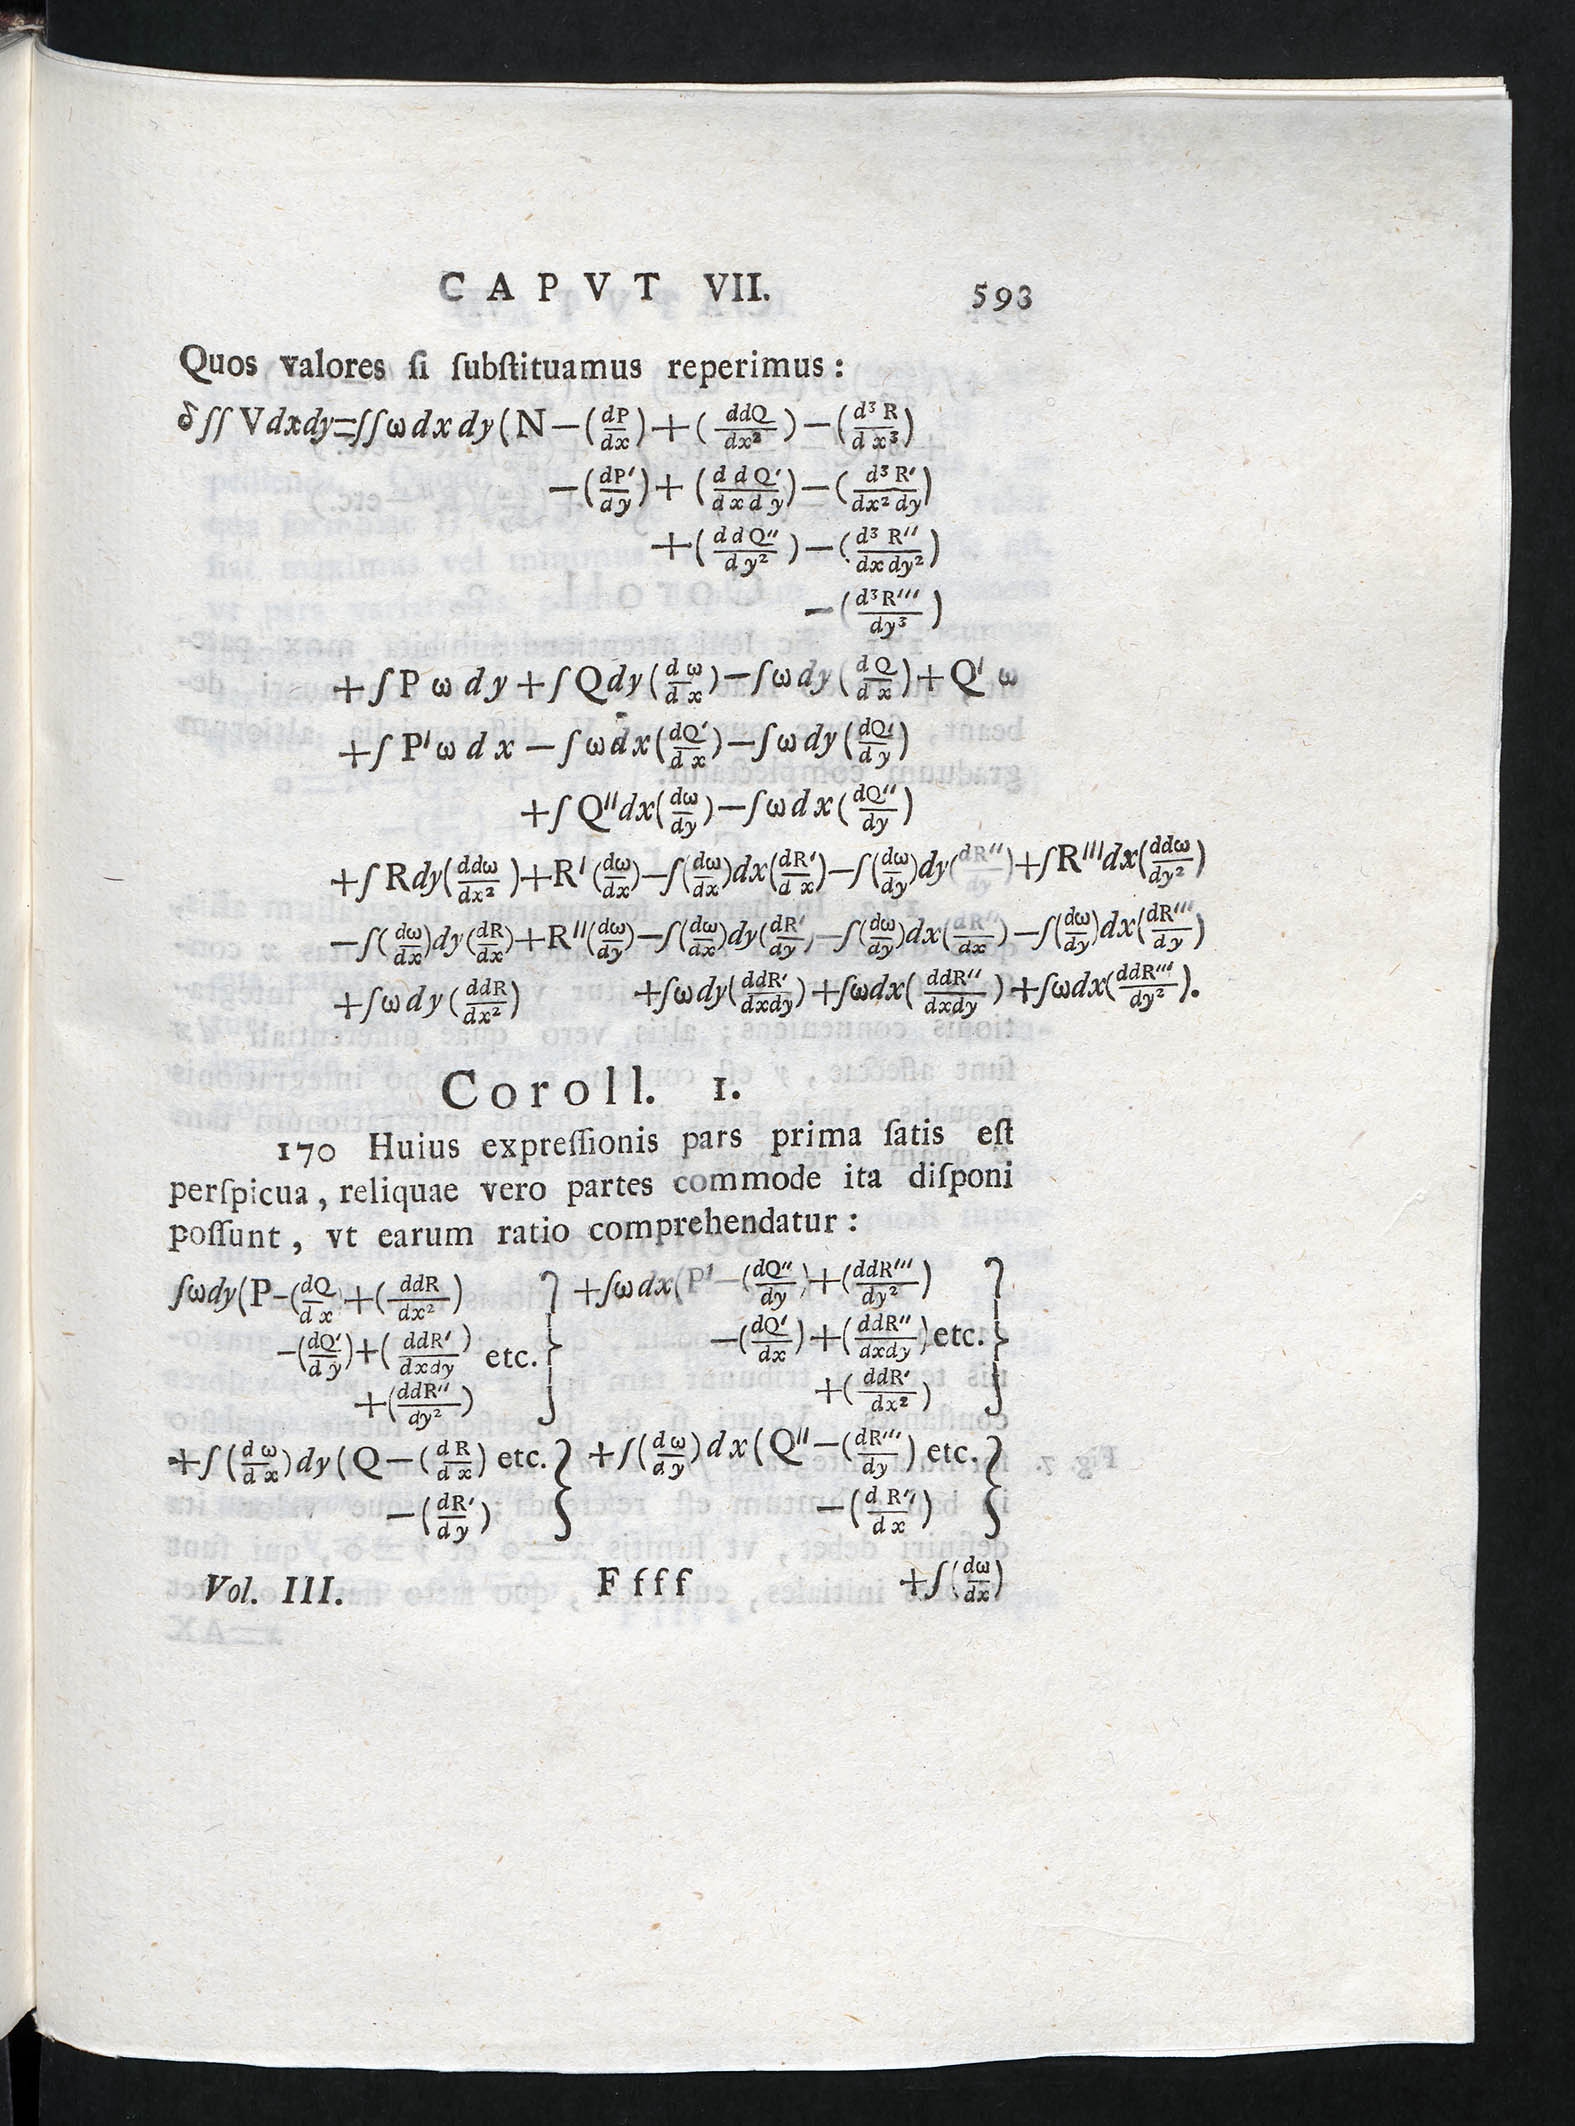 CAPVT VII. 593
Quos valores ſi ſubſtituamus reperimus:
δ∫∫Vdxdy=∫∫ωdxdy(N−(dP/dx)+(ddQ/dx²)−(d³R/dx³)
−(dP′/dy)+(ddQ′/dxdy)−(d³R′/dx²dy)
+(ddQ″/dy²)−(d³R″/dxdy²)
−(d³R‴/dy³)
+∫Pωdy+∫Qdy(dω/dx)−∫ωdy(dQ/dx)+Q′ω
+∫P′ωdx−∫ωdx(dQ′/dx)−∫ωdy(dQ′/dy)
+∫Q″dx(dω/dy)−∫ωdx(dQ″/dy)
+∫Rdy(ddω/dx²)+R′(dω/dx)−∫(dω/dx)dx(dR′/dx)−∫(dω/dy)dy(dR″/dy)+∫R‴dx(ddω/dy²)
−∫(dω/dx)dy(dR/dx)+R″(dω/dy)−∫(dω/dx)dy(dR′/dy)−∫(dω/dy)dx(dR″/dx)−∫(dω/dy)dx(dR‴/dy)
+∫ωdy(ddR/dx²) +∫ωdy(ddR′/dxdy)+∫ωdx(ddR″/dxdy)+∫ωdx(ddR‴/dy²).
Coroll. 1.
170 Huius expreſſionis pars prima ſatis eſt
perſpicua, reliquae vero partes commode ita diſponi
poſſunt, vt earum ratio comprehendatur:
∫ωdy(P−(dQ/dx)+(ddR/dx²) +∫ωdx(P′−(dQ″/dy)+(ddR‴/dy²)
−(dQ′/dy)+(ddR′/dxdy) etc.} −(dQ′/dx)+(ddR″/dxdy) etc.}
+(ddR″/dy²) +(ddR′/dx²)
+∫(dω/dx)dy(Q−(dR/dx) etc.} +∫(dω/dy)dx(Q″−(dR‴/dy) etc.}
−(dR′/dy) −(dR″/dx)
Vol. III. Ffff +∫(dω/dx)